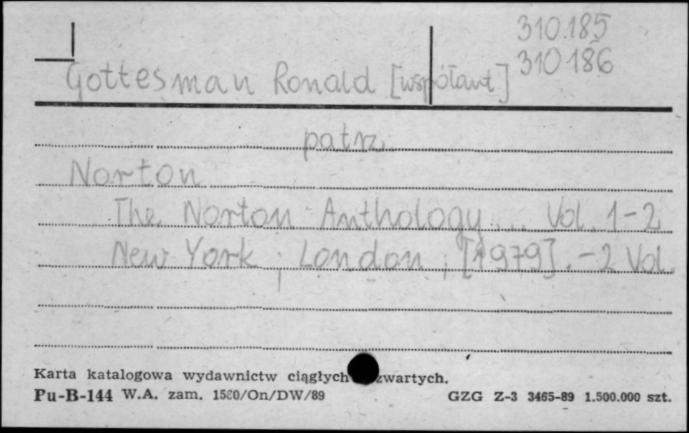 310.185
310186
Gottesman Ronald [współaut]
patrz
Norton
The Norton Anthology ... Vol. 1-2
New York ; London , [1979]. - 2 Vol.
Karta katalogowa wydawnictw ciągłych zwartych.
Pu-B-144 W.A. zam. 1580/On/DW/89 GZG Z-3 3465-89 1.500.000 szt.